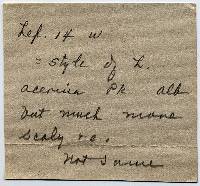 Lef. 14 w
= style of L.
acerina Pk alb
but much more
scaly &c.
Not same